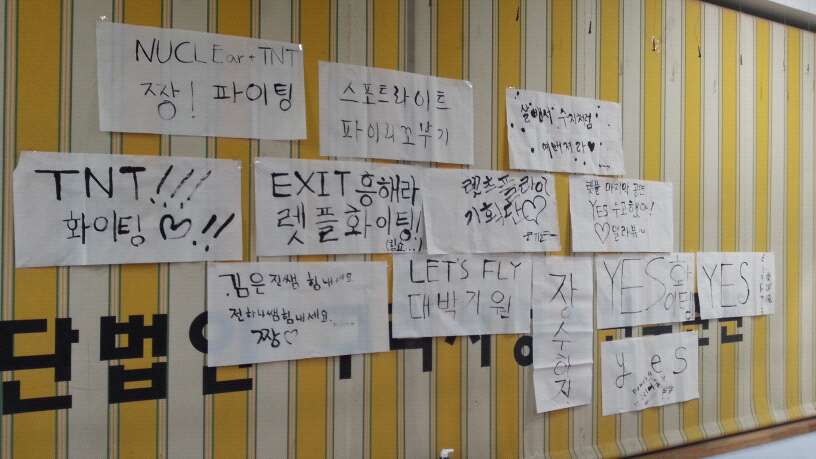 NUCLEar+TNT
짱! 파이팅
스포트라이트
파이리꼬부기
살빼서 수지처럼
예뻐져라♥
TNT!!!
화이팅♡!!
EXIT 흥해라
렛플화이팅!
렛츠플라이
기획단♡
렛플 마지막 골든
YES 수고했어!
♡알라뷰~
김은진쌤 힘내세요
전하나쌤힘내세요......
짱♡
LET'S FLY
대박기원
장수하자
YES화이팅
YES
yes
단법인